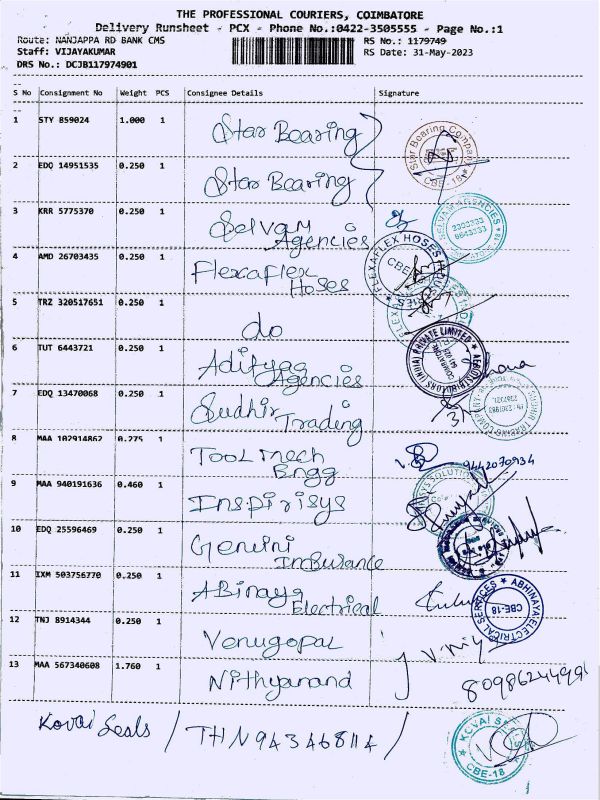 THE PROFESSIONAL COURIERS, COIMBATORE
Delivery Runsheet - PCX - Phone No.:0422-3505555 - Page No.:1
Route: NANJAPPA RD BANK CMS RS No.: 1179749
Staff: VIJAYAKUMAR RS Date: 31-May-2023
DRS No.: DCJB117974901
S No Consignment No Weight PCS Consignee Details Signature
1 STY 859024 1.000 1 Star Bearing
Star Bearing Company CBE-18
2 EDQ 14951535 0.250 1 Star Bearing
3 KRR 5775370 0.250 1 Selvam Agencies
SELVAM AGENCIES
4 AMD 26703435 0.250 1 Flexaflex Hoses
FLEXAFLEX HOSES CBE
5 TRZ 320517651 0.250 1 do
6 TUT 6443721 0.250 1 Adityaa Agencies
(INDIA) PRIVATE LIMITED
7 EDQ 13470068 0.250 1 Sudhir Trading
8 MAA 102914862 0.275 1 Tool Mech Engg
9442070934
9 MAA 940191636 0.460 1 Inspirisys
10 EDQ 25596469 0.250 1 Gemini Insurance
11 IXM 503756770 0.250 1 ABinaya Electrical
ABHINAYA ELECTRICAL SERVICES CBE-18
12 TNJ 8914344 0.250 1 Venugopal
13 MAA 567340608 1.760 1 Nithyanand
Kovai Seals / THN 94346814 /
KOVAI CBE-18